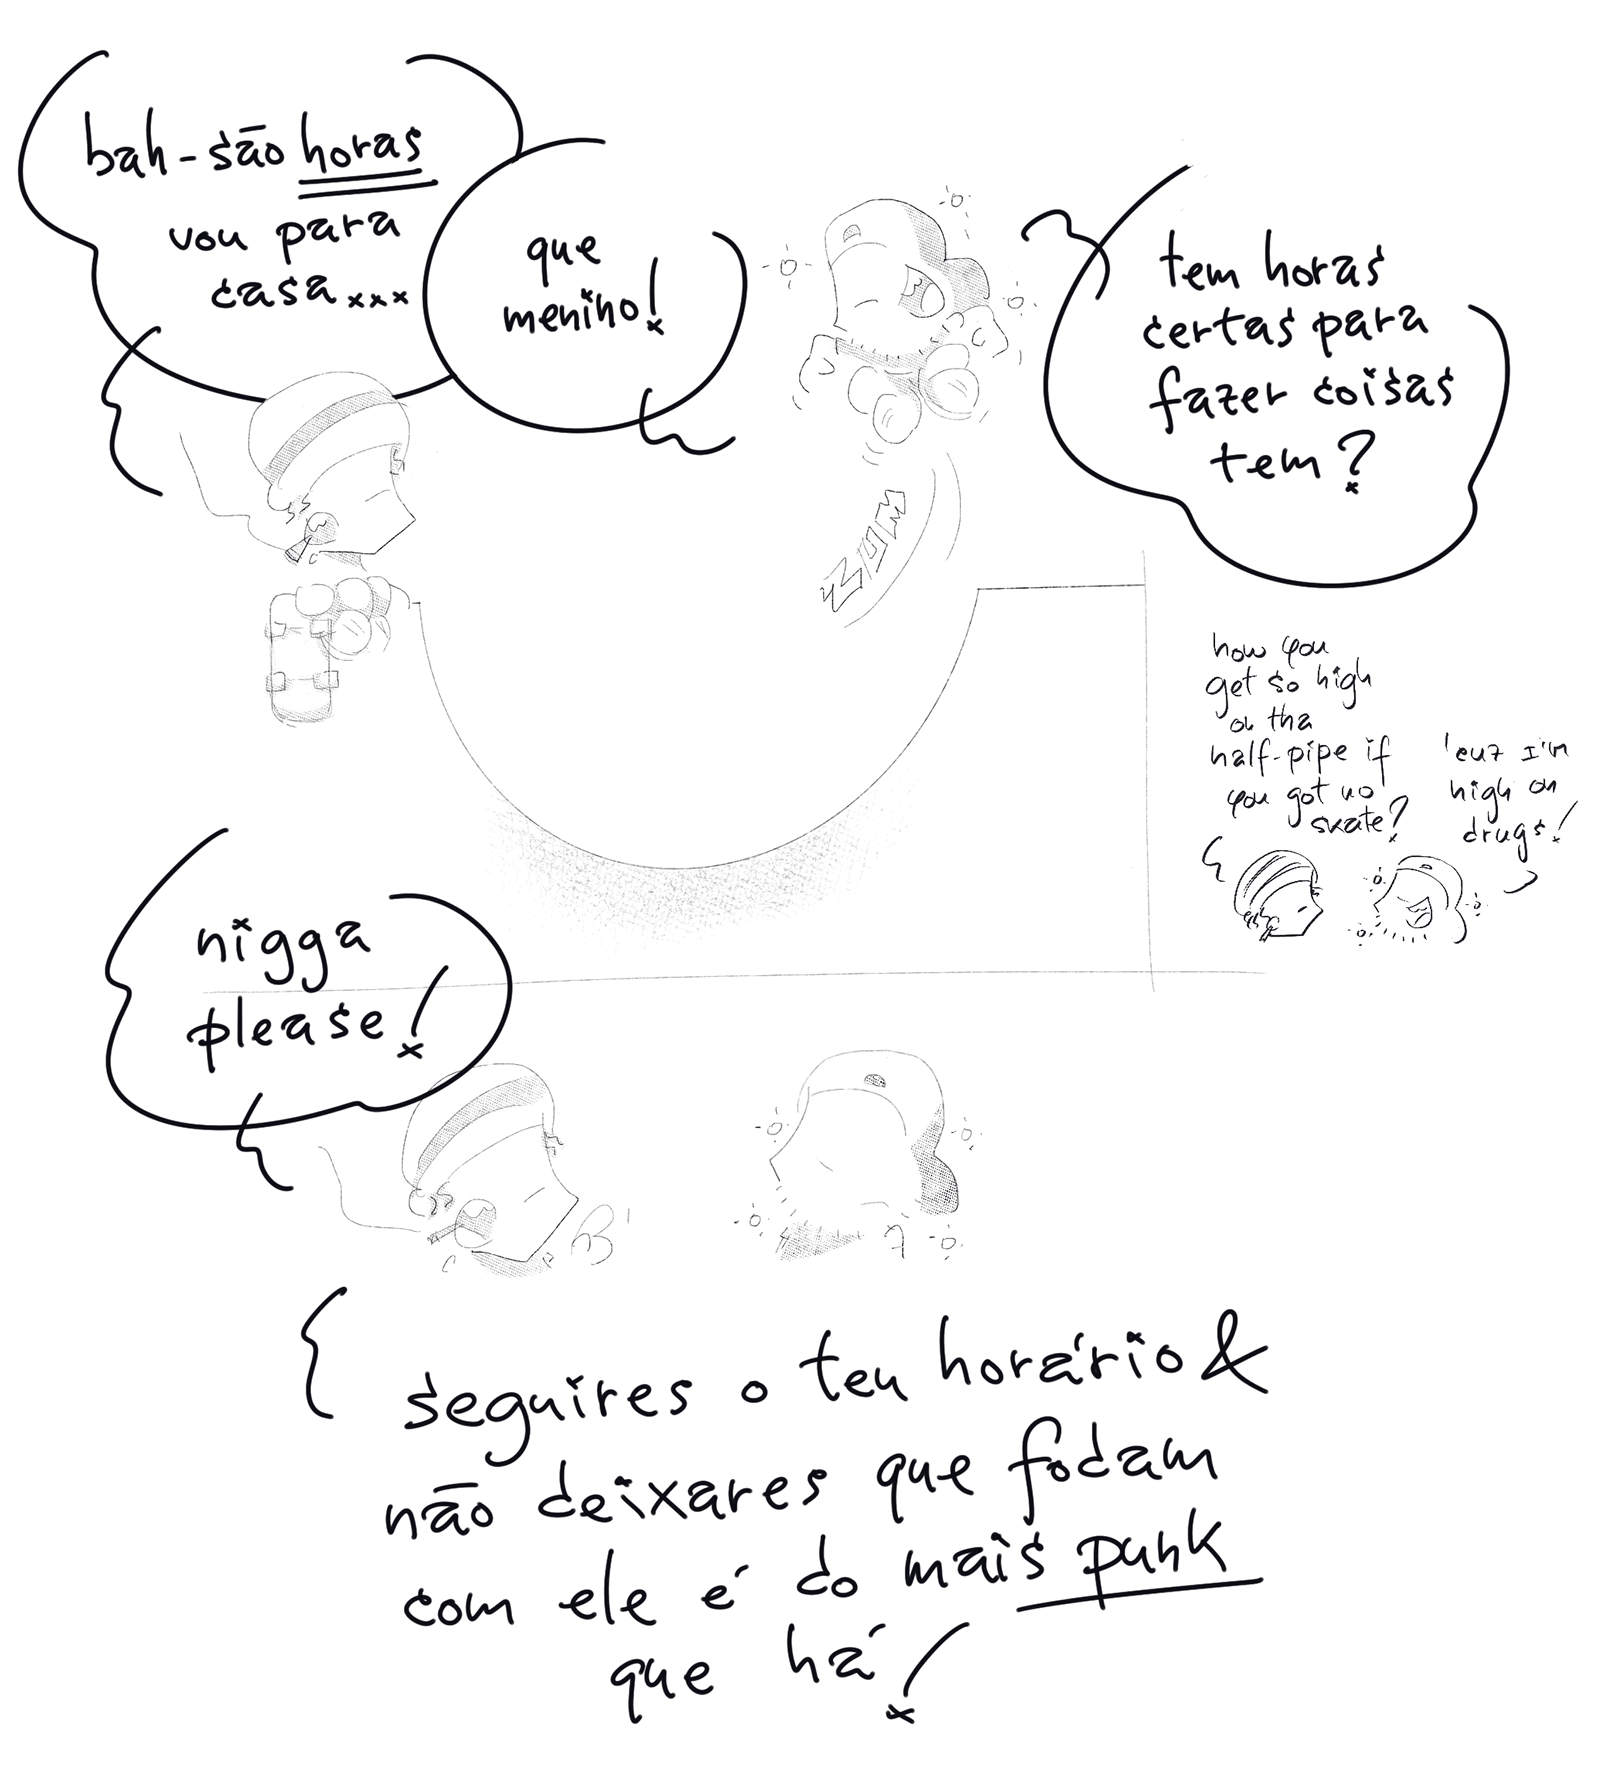 bah-são horas
vou para
casa...
que
menino!
tem horas
certas para
fazer coisas
tem?
ZUM
how you
get so high
on tha
half-pipe if
you got no
skate?
'cuz I'm
high on
drugs!
nigga
please!
seguires o teu horário &
não deixares que fodam
com ele é do mais punk
que há!